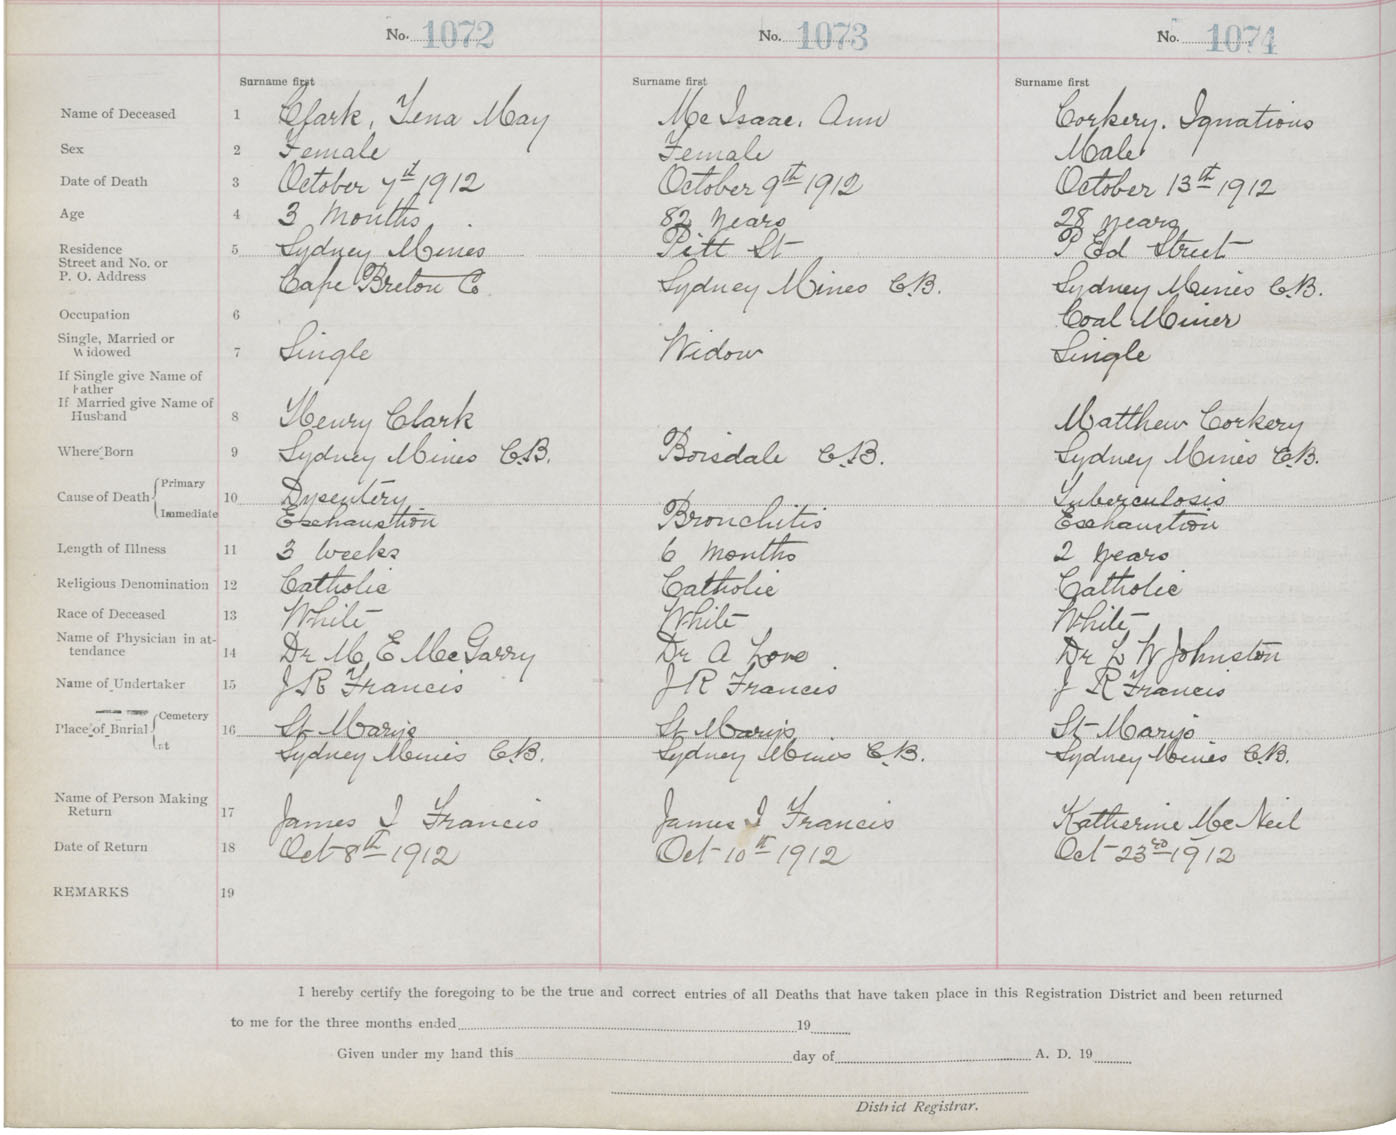 No. 1072 No. 1073 No. 1074
Surname first Surname first Surname first
Name of Deceased 1 Clark, Tena May Mc Isaac, Ann Corkery. Ignatious
Sex 2 Female Female Male
Date of Death 3 October 7th 1912 October 9th 1912 October 13th 1912
Age 4 3 months 82 years 28 years
Residence 5 Sydney Mines Pitt St P Ed Street
Street and No. or
P. O. Address Cape Breton Co Sydney Mines C.B. Sydney Mines C.B.
Occupation 6 Coal Miner
Single, Married or
Widowed 7 Single Widow Single
If Single give Name of
Father
If Married give Name of
Husband 8 Henry Clark Matthew Corkery
Where Born 9 Sydney Mines C.B. Boisdale C.B. Sydney Mines C.B.
Cause of Death Primary 10 Dysentery Tuberculosis
Immediate Exhaustion Bronchitis Exhaustion
Length of Illness 11 3 weeks 6 months 2 years
Religious Denomination 12 Catholic Catholic Catholic
Race of Deceased 13 White White White
Name of Physician in at-
tendance 14 Dr M. E McGarry Dr A Love Dr L W Johnston
Name of Undertaker 15 J R Francis J R Francis J R Francis
Place of Burial Cemetery 16 St Marys St Marys St Marys
at Sydney Mines C.B. Sydney Mines C.B. Sydney Mines C.B.
Name of Person Making
Return 17 James J Francis James J Francis Katherine McNeil
Date of Return 18 Oct 8th 1912 Oct 10th 1912 Oct 23rd 1912
REMARKS 19
I hereby certify the foregoing to be the true and correct entries of all Deaths that have taken place in this Registration District and been returned
to me for the three months ended 19
Given under my hand this day of A. D. 19
District Registrar.